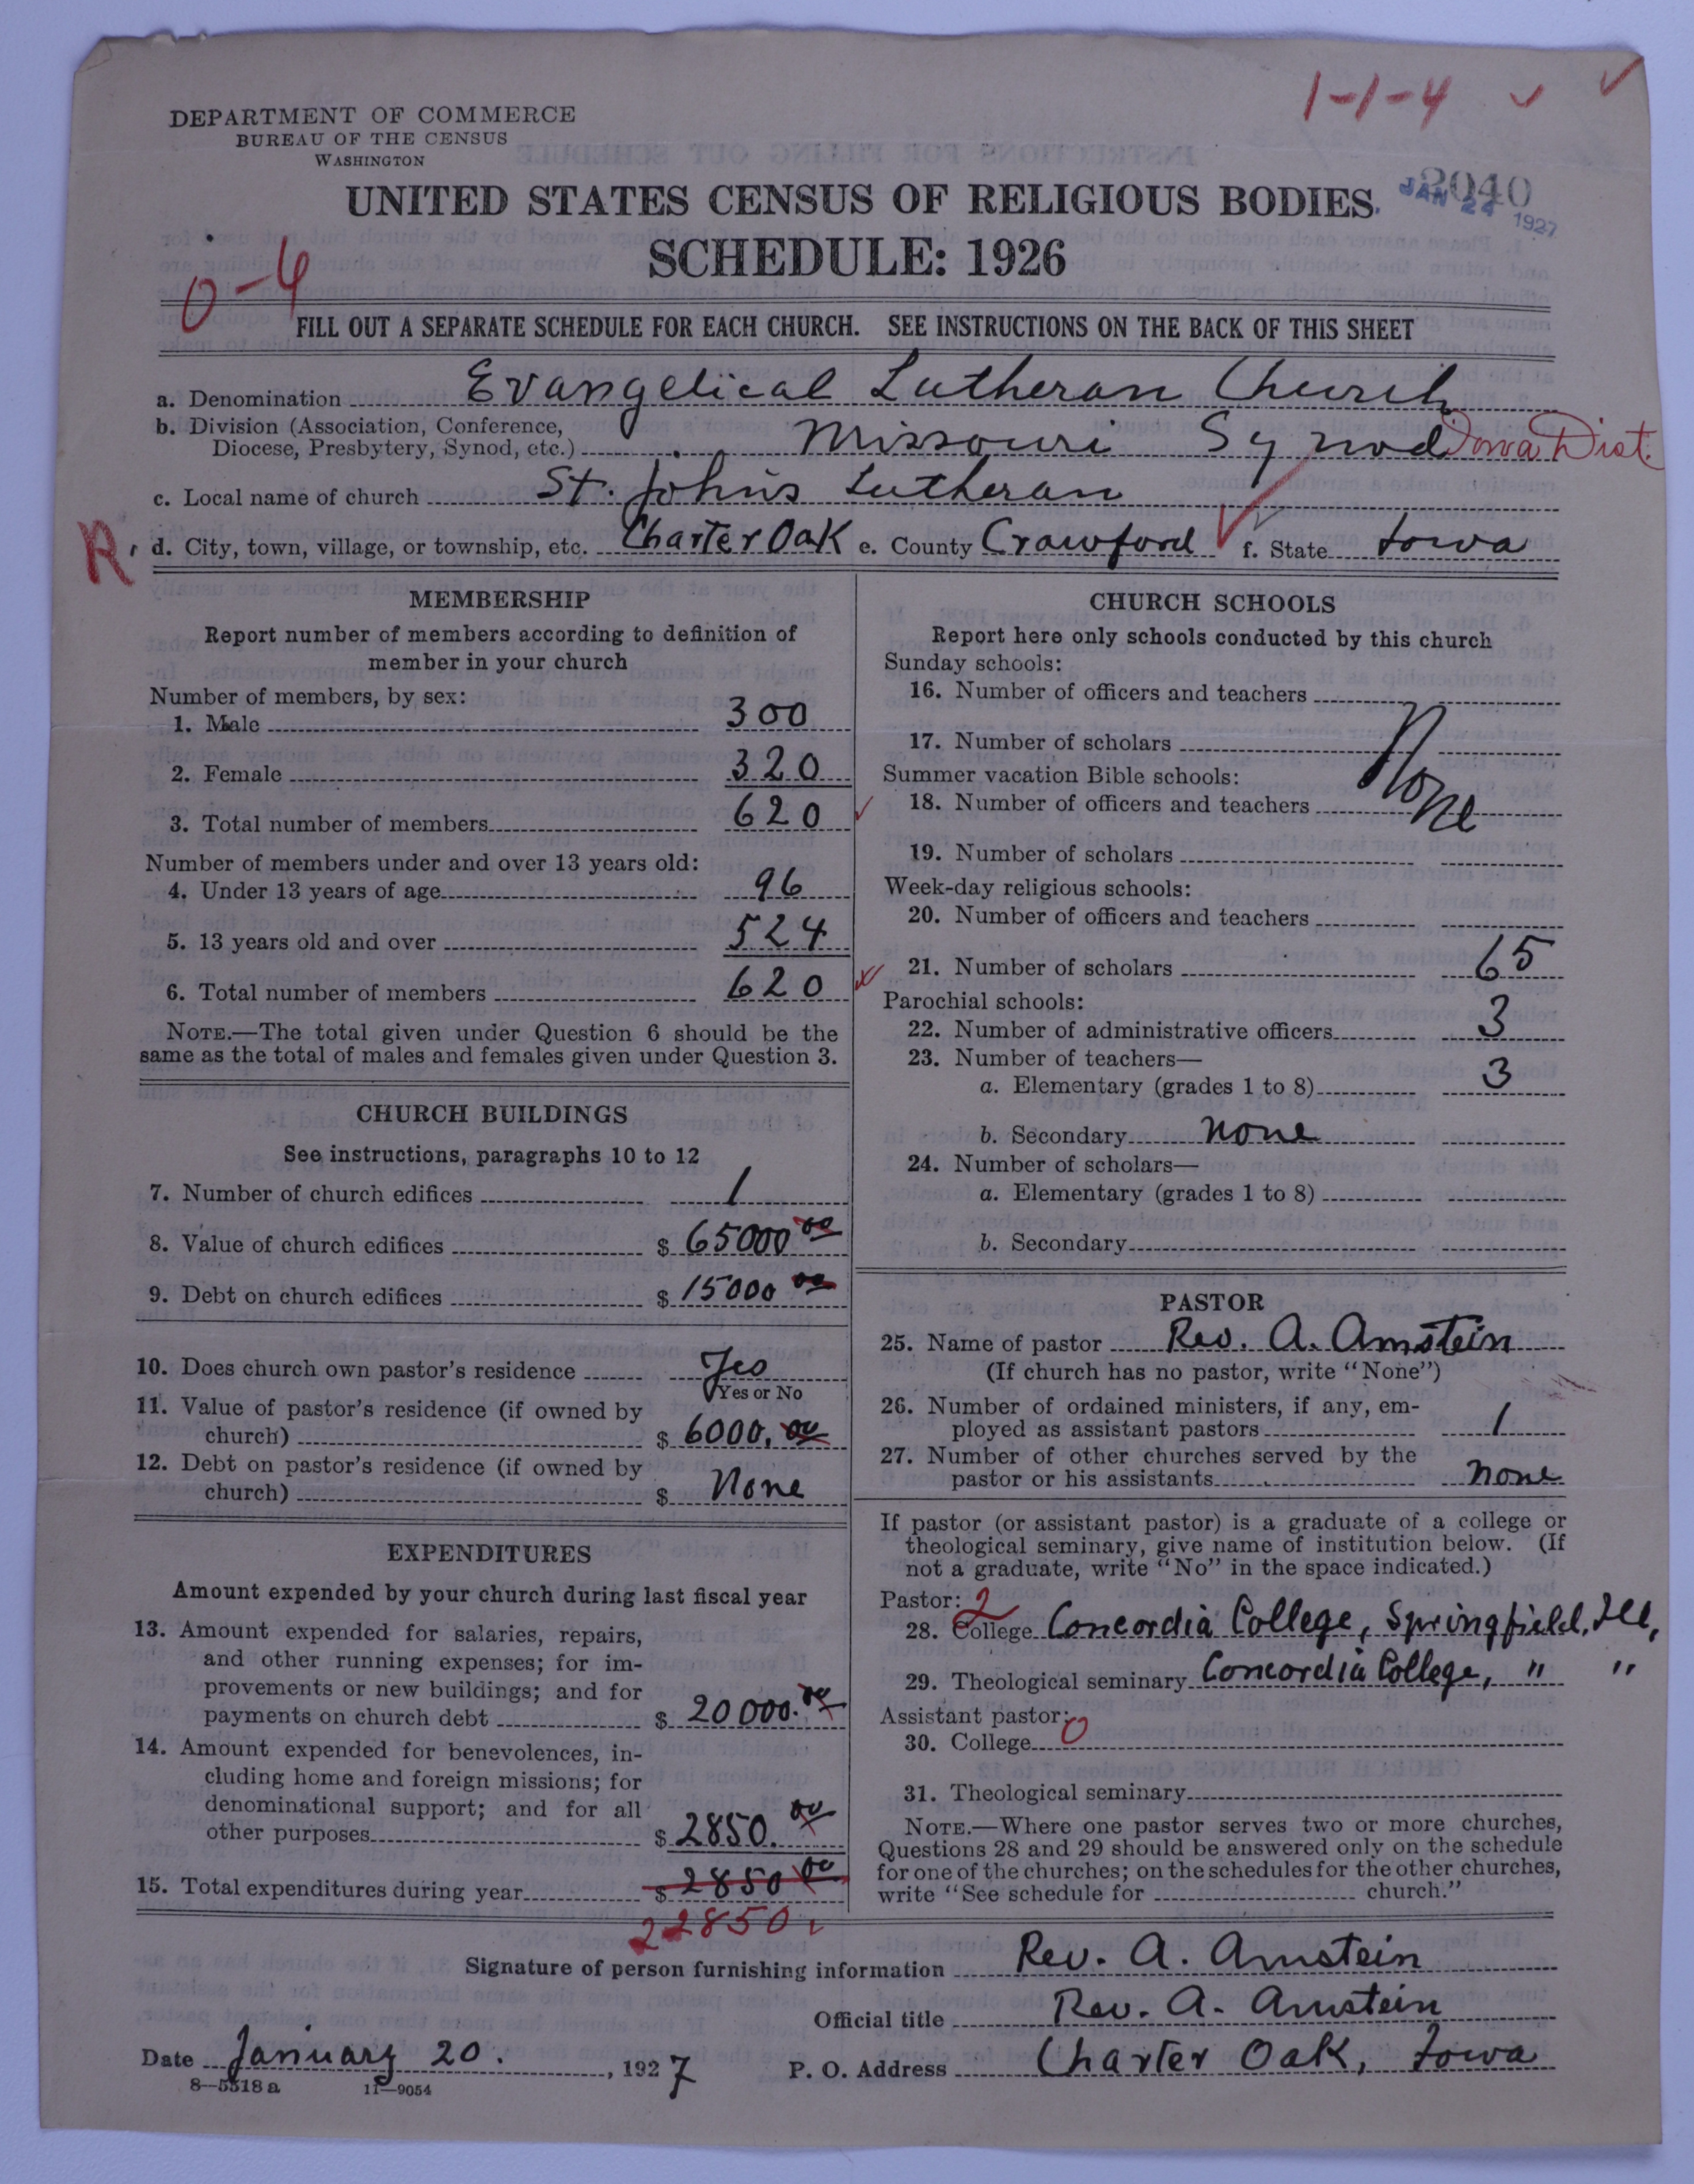 1-1-4
DEPARTMENT OF COMMERCE
BUREAU OF THE CENSUS
WASHINGTON
2040
JAN 24 1927
UNITED STATES CENSUS OF RELIGIOUS BODIES.
SCHEDULE: 1926
0-4
FILL OUT A SEPARATE SCHEDULE FOR EACH CHURCH. SEE INSTRUCTIONS ON THE BACK OF THIS SHEET
a. Denomination Evangelical Lutheran Church
b. Division (Association, Conference,
Diocese, Presbytery, Synod, etc.) Missouri Synod Iowa Dist.
c. Local name of church St. Johns Lutheran
R. d. City, town, village, or township, etc. Charter Oak e. County Crawford f. State Iowa
MEMBERSHIP
Report number of members according to definition of
member in your church
Number of members, by sex:
1. Male 300
2. Female 320
3. Total number of members 620
Number of members under and over 13 years old:
4. Under 13 years of age 96
5. 13 years old and over 524
6. Total number of members 620
NOTE.—The total given under Question 6 should be the
same as the total of males and females given under Question 3.
CHURCH BUILDINGS
See instructions, paragraphs 10 to 12
7. Number of church edifices 1
8. Value of church edifices $ 65000 00
9. Debt on church edifices $ 15000 00
10. Does church own pastor's residence Yes
Yes or No
11. Value of pastor's residence (if owned by
church) $ 6000. 00
12. Debt on pastor's residence (if owned by
church) $ None
EXPENDITURES
Amount expended by your church during last fiscal year
13. Amount expended for salaries, repairs,
and other running expenses; for im-
provements or new buildings; and for
payments on church debt $ 20000. 00
14. Amount expended for benevolences, in-
cluding home and foreign missions; for
denominational support; and for all
other purposes $ 2850. 00
15. Total expenditures during year $ 2850 00
22850.
CHURCH SCHOOLS
Report here only schools conducted by this church
Sunday schools:
16. Number of officers and teachers
17. Number of scholars
None
Summer vacation Bible schools:
18. Number of officers and teachers
19. Number of scholars
Week-day religious schools:
20. Number of officers and teachers
21. Number of scholars 65
Parochial schools:
22. Number of administrative officers 3
23. Number of teachers—
a. Elementary (grades 1 to 8) 3
b. Secondary none
24. Number of scholars—
a. Elementary (grades 1 to 8)
b. Secondary
PASTOR
25. Name of pastor Rev. A. Amstein
(If church has no pastor, write "None")
26. Number of ordained ministers, if any, em-
ployed as assistant pastors 1
27. Number of other churches served by the
pastor or his assistants none
If pastor (or assistant pastor) is a graduate of a college or
theological seminary, give name of institution below. (If
not a graduate, write "No" in the space indicated.)
Pastor: 2
28. College Concordia College, Springfield, Ill,
29. Theological seminary Concordia College, " "
Assistant pastor: 0
30. College
31. Theological seminary
NOTE.—Where one pastor serves two or more churches,
Questions 28 and 29 should be answered only on the schedule
for one of the churches; on the schedules for the other churches,
write "See schedule for church."
Signature of person furnishing information Rev. A. Amstein
Official title Rev. A. Amstein
Date January 20. , 1927 P. O. Address Charter Oak, Iowa
8—5518 a 11—9054